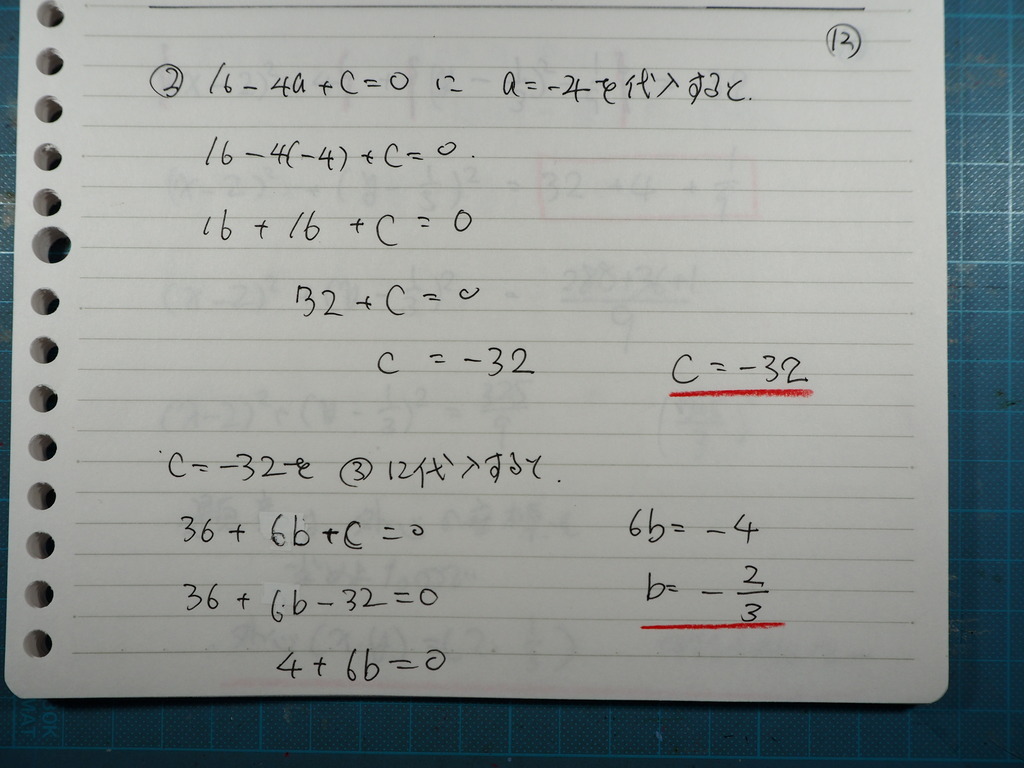 ⑫
② 16 - 4a + C = 0 に a = -4 を代入すると.
16 - 4(-4) + C = 0.
16 + 16 + C = 0
32 + C = 0
C = -32
C = -32
C = -32 を ③ に代入すると.
36 + 6b + C = 0
36 + 6b - 32 = 0
4 + 6b = 0
6b = -4
b = - 2/3